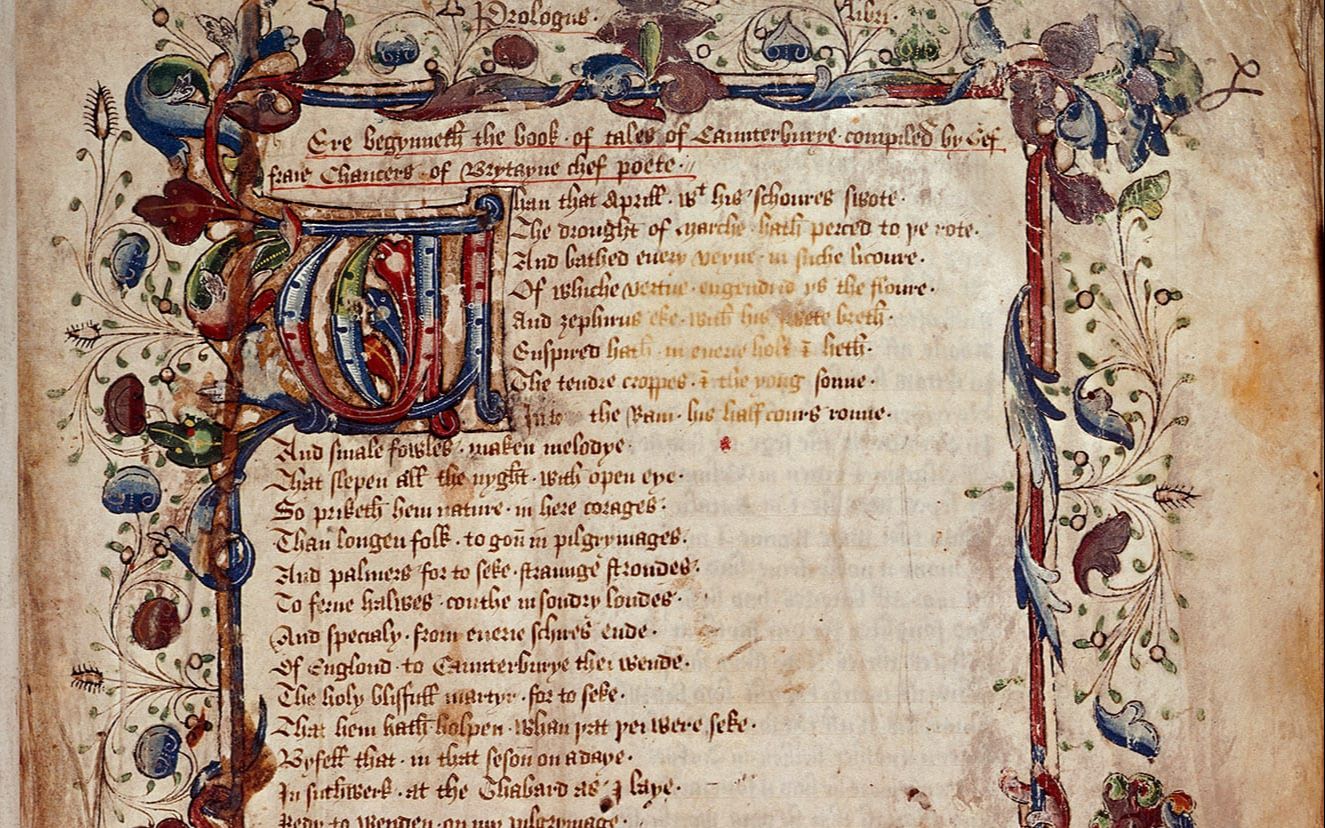 Prologus · libri ·
Ere begynneth the book · of tales of Caunterburye · compiled by Gef
fraie Chaucers · of Brytayne chef poete ·
Whan that Aprill · wt his schoures swote ·
The drought of marche · hath perced to þe rote ·
And bathed euery veyne · in suche licoure ·
Of whiche vertue · engendrid ys the floure ·
And zephirus eke · with his swete breth ·
Enspired hath · in euerie holt ⁊ heth ·
The tendre croppes · ⁊ the yong sonne ·
Into the Ram · his half cours ronne ·
And smale fowles · maken melodye ·
That slepen all the nyght · with open eye ·
So priketh hem nature · in here corages ·
Than longen folk · to gon in pilgrymages ·
And palmers for to seke · straunge strondes ·
To ferne halwes · couthe in sondry londes ·
And specialy · from euerie schires ende ·
Of Englond · to Caunterburye thei wende ·
The holy blisfull martyr · for to seke ·
That hem hath holpen · whan þat þei were seke ·
Byfell that · in that seson on a daye ·
In suthwerk · at the Thabard as I laye ·
Redy to wenden · on my pilgrymage ·